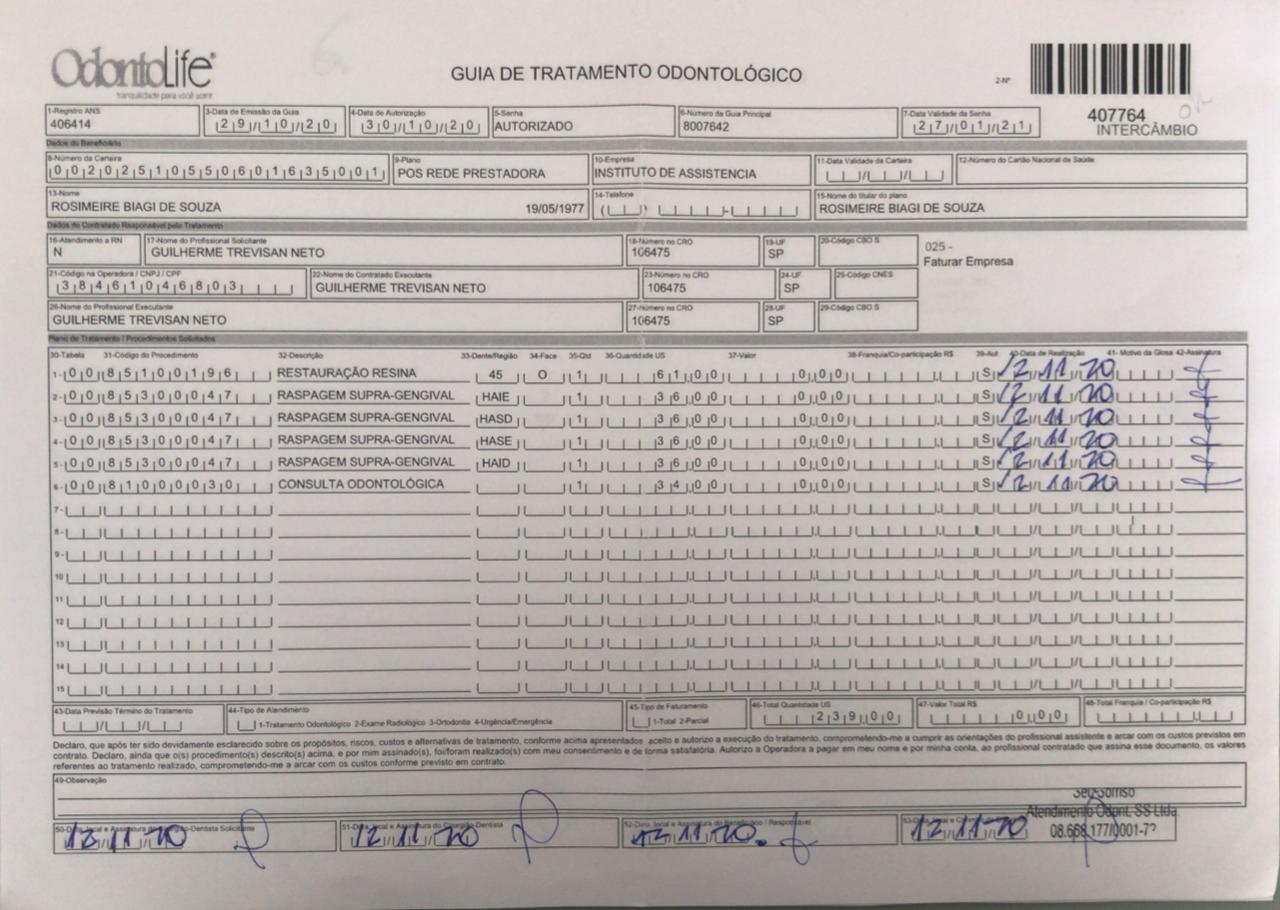 OdontoLife®
tranquilidade para você sorrir
GUIA DE TRATAMENTO ODONTOLÓGICO
2-Nº
407764
INTERCÂMBIO
1-Registro ANS 3-Data de Emissão da Guia 4-Data de Autorização 5-Senha 6-Número da Guia Principal 7-Data Validade da Senha
406414 29/10/20 30/10/20 AUTORIZADO 8007642 27/01/21
Dados do Beneficiário
8-Número da Carteira 9-Plano 10-Empresa 11-Data Validade da Carteira 12-Número do Cartão Nacional de Saúde
00202510550601635001 POS REDE PRESTADORA INSTITUTO DE ASSISTENCIA
13-Nome 14-Telefone 15-Nome do titular do plano
ROSIMEIRE BIAGI DE SOUZA 19/05/1977 ROSIMEIRE BIAGI DE SOUZA
Dados do Contratado Responsável pelo Tratamento
16-Atendimento a RN 17-Nome do Profissional Solicitante 18-Número no CRO 19-UF 20-Código CBO S
N GUILHERME TREVISAN NETO 106475 SP
025 -
Faturar Empresa
21-Código na Operadora / CNPJ / CPF 22-Nome do Contratado Executante 23-Número no CRO 24-UF 25-Código CNES
38461046803 GUILHERME TREVISAN NETO 106475 SP
26-Nome do Profissional Executante 27-Número no CRO 28-UF 29-Código CBO S
GUILHERME TREVISAN NETO 106475 SP
Plano de Tratamento / Procedimentos Solicitados
30-Tabela 31-Código do Procedimento 32-Descrição 33-Dente/Região 34-Face 35-Qtd 36-Quantidade US 37-Valor 38-Franquia/Co-participação R$ 39-Aut 40-Data de Realização 41- Motivo da Glosa 42-Assinatura
1- 00 85100196 RESTAURAÇÃO RESINA 45 O 1 61,00 0,00 S 12/11/20
2- 00 85300047 RASPAGEM SUPRA-GENGIVAL HAIE 1 36,00 0,00 S 12/11/20
3- 00 85300047 RASPAGEM SUPRA-GENGIVAL HASD 1 36,00 0,00 S 12/11/20
4- 00 85300047 RASPAGEM SUPRA-GENGIVAL HASE 1 36,00 0,00 S 12/11/20
5- 00 85300047 RASPAGEM SUPRA-GENGIVAL HAID 1 36,00 0,00 S 12/11/20
6- 00 81000030 CONSULTA ODONTOLÓGICA 1 34,00 0,00 S 12/11/20
7-
8-
9-
10
11
12
13
14
15
43-Data Previsão Término do Tratamento 44-Tipo de Atendimento 45-Tipo de Faturamento 46-Total Quantidade US 47-Valor Total R$ 48-Total Franquia / Co-participação R$
1-Tratamento Odontológico 2-Exame Radiológico 3-Ortodontia 4-Urgência/Emergência 1-Total 2-Parcial 239,00 0,00
Declaro, que após ter sido devidamente esclarecido sobre os propósitos, riscos, custos e alternativas de tratamento, conforme acima apresentados, aceito e autorizo a execução do tratamento, comprometendo-me a cumprir as orientações do profissional assistente e arcar com os custos previstos em
contrato. Declaro, ainda que o(s) procedimento(s) descrito(s) acima, e por mim assinado(s), foi/foram realizado(s) com meu consentimento e de forma satisfatória. Autorizo a Operadora a pagar em meu nome e por minha conta, ao profissional contratado que assina esse documento, os valores
referentes ao tratamento realizado, comprometendo-me a arcar com os custos conforme previsto em contrato.
49-Observação
Seu Sorriso
Atendimento Odont. SS Ltda
08.668.177/0001-7
12/11/20 12/11/20 12/11/20 12/11/20